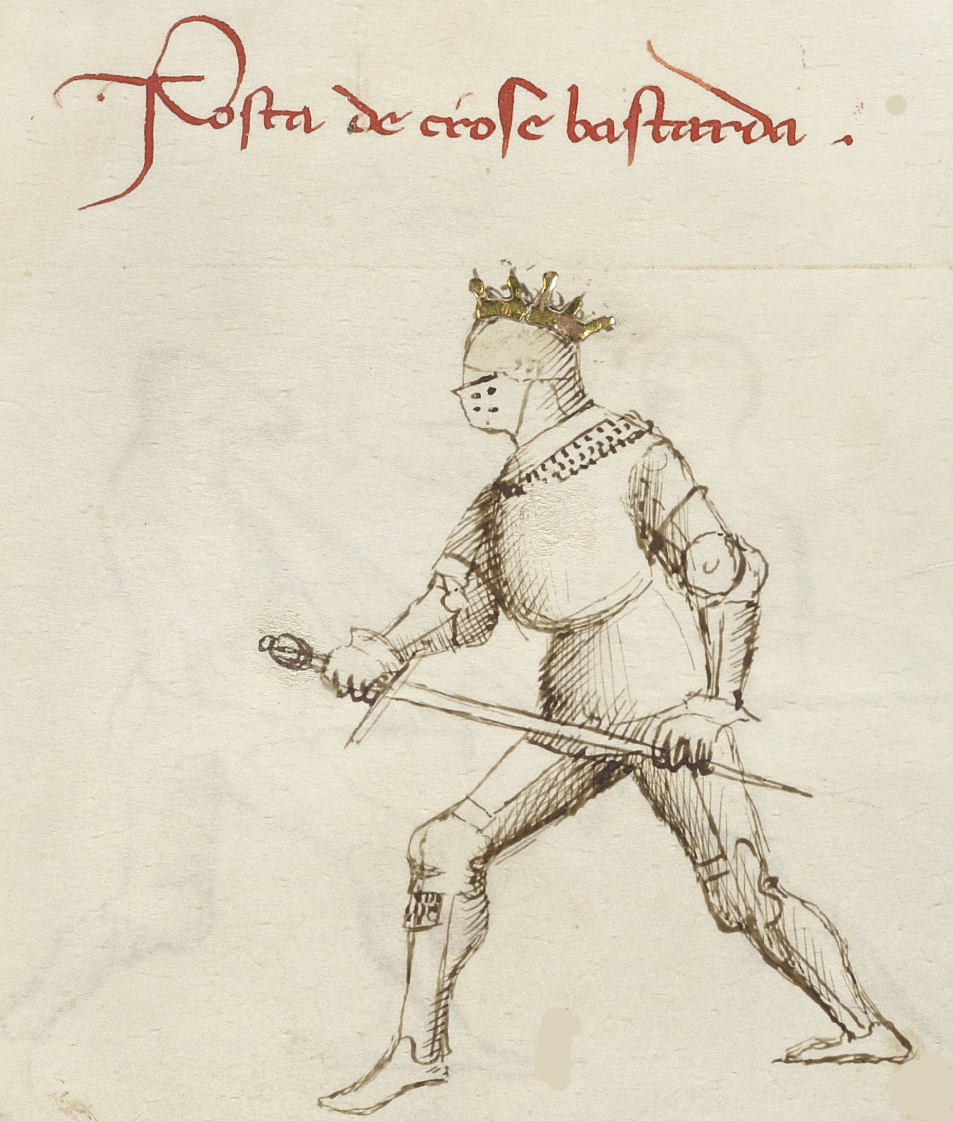 Posta de crose bastarda .